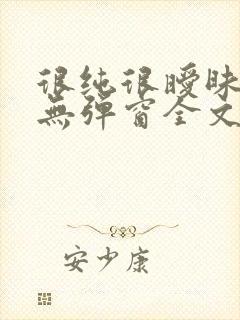 很纯很暧昧
無弹窗全文
安少康